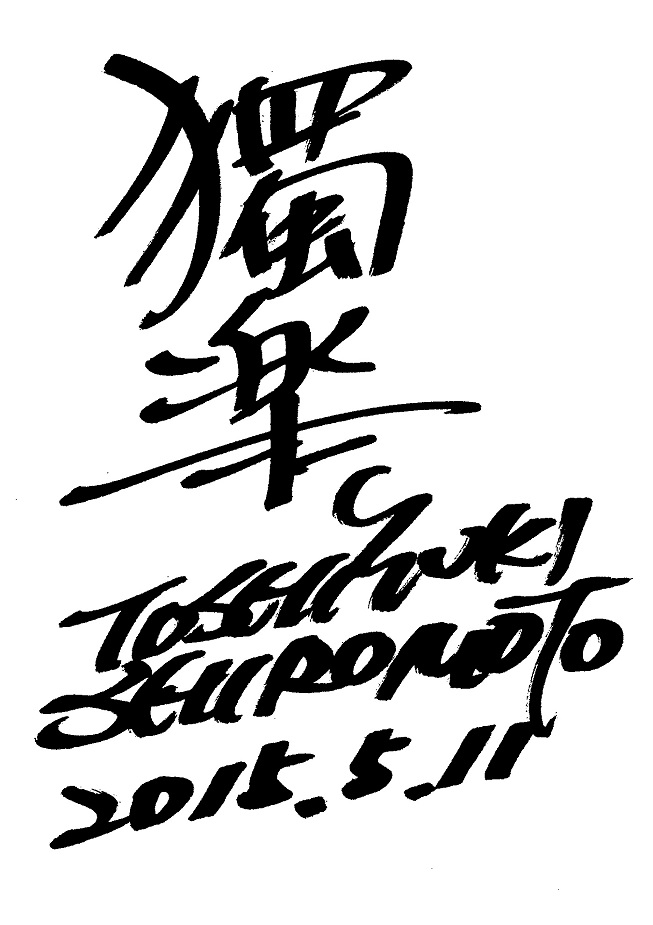 獨
楽
TOSHIYUKI
SHIROMOTO
2015.5.11